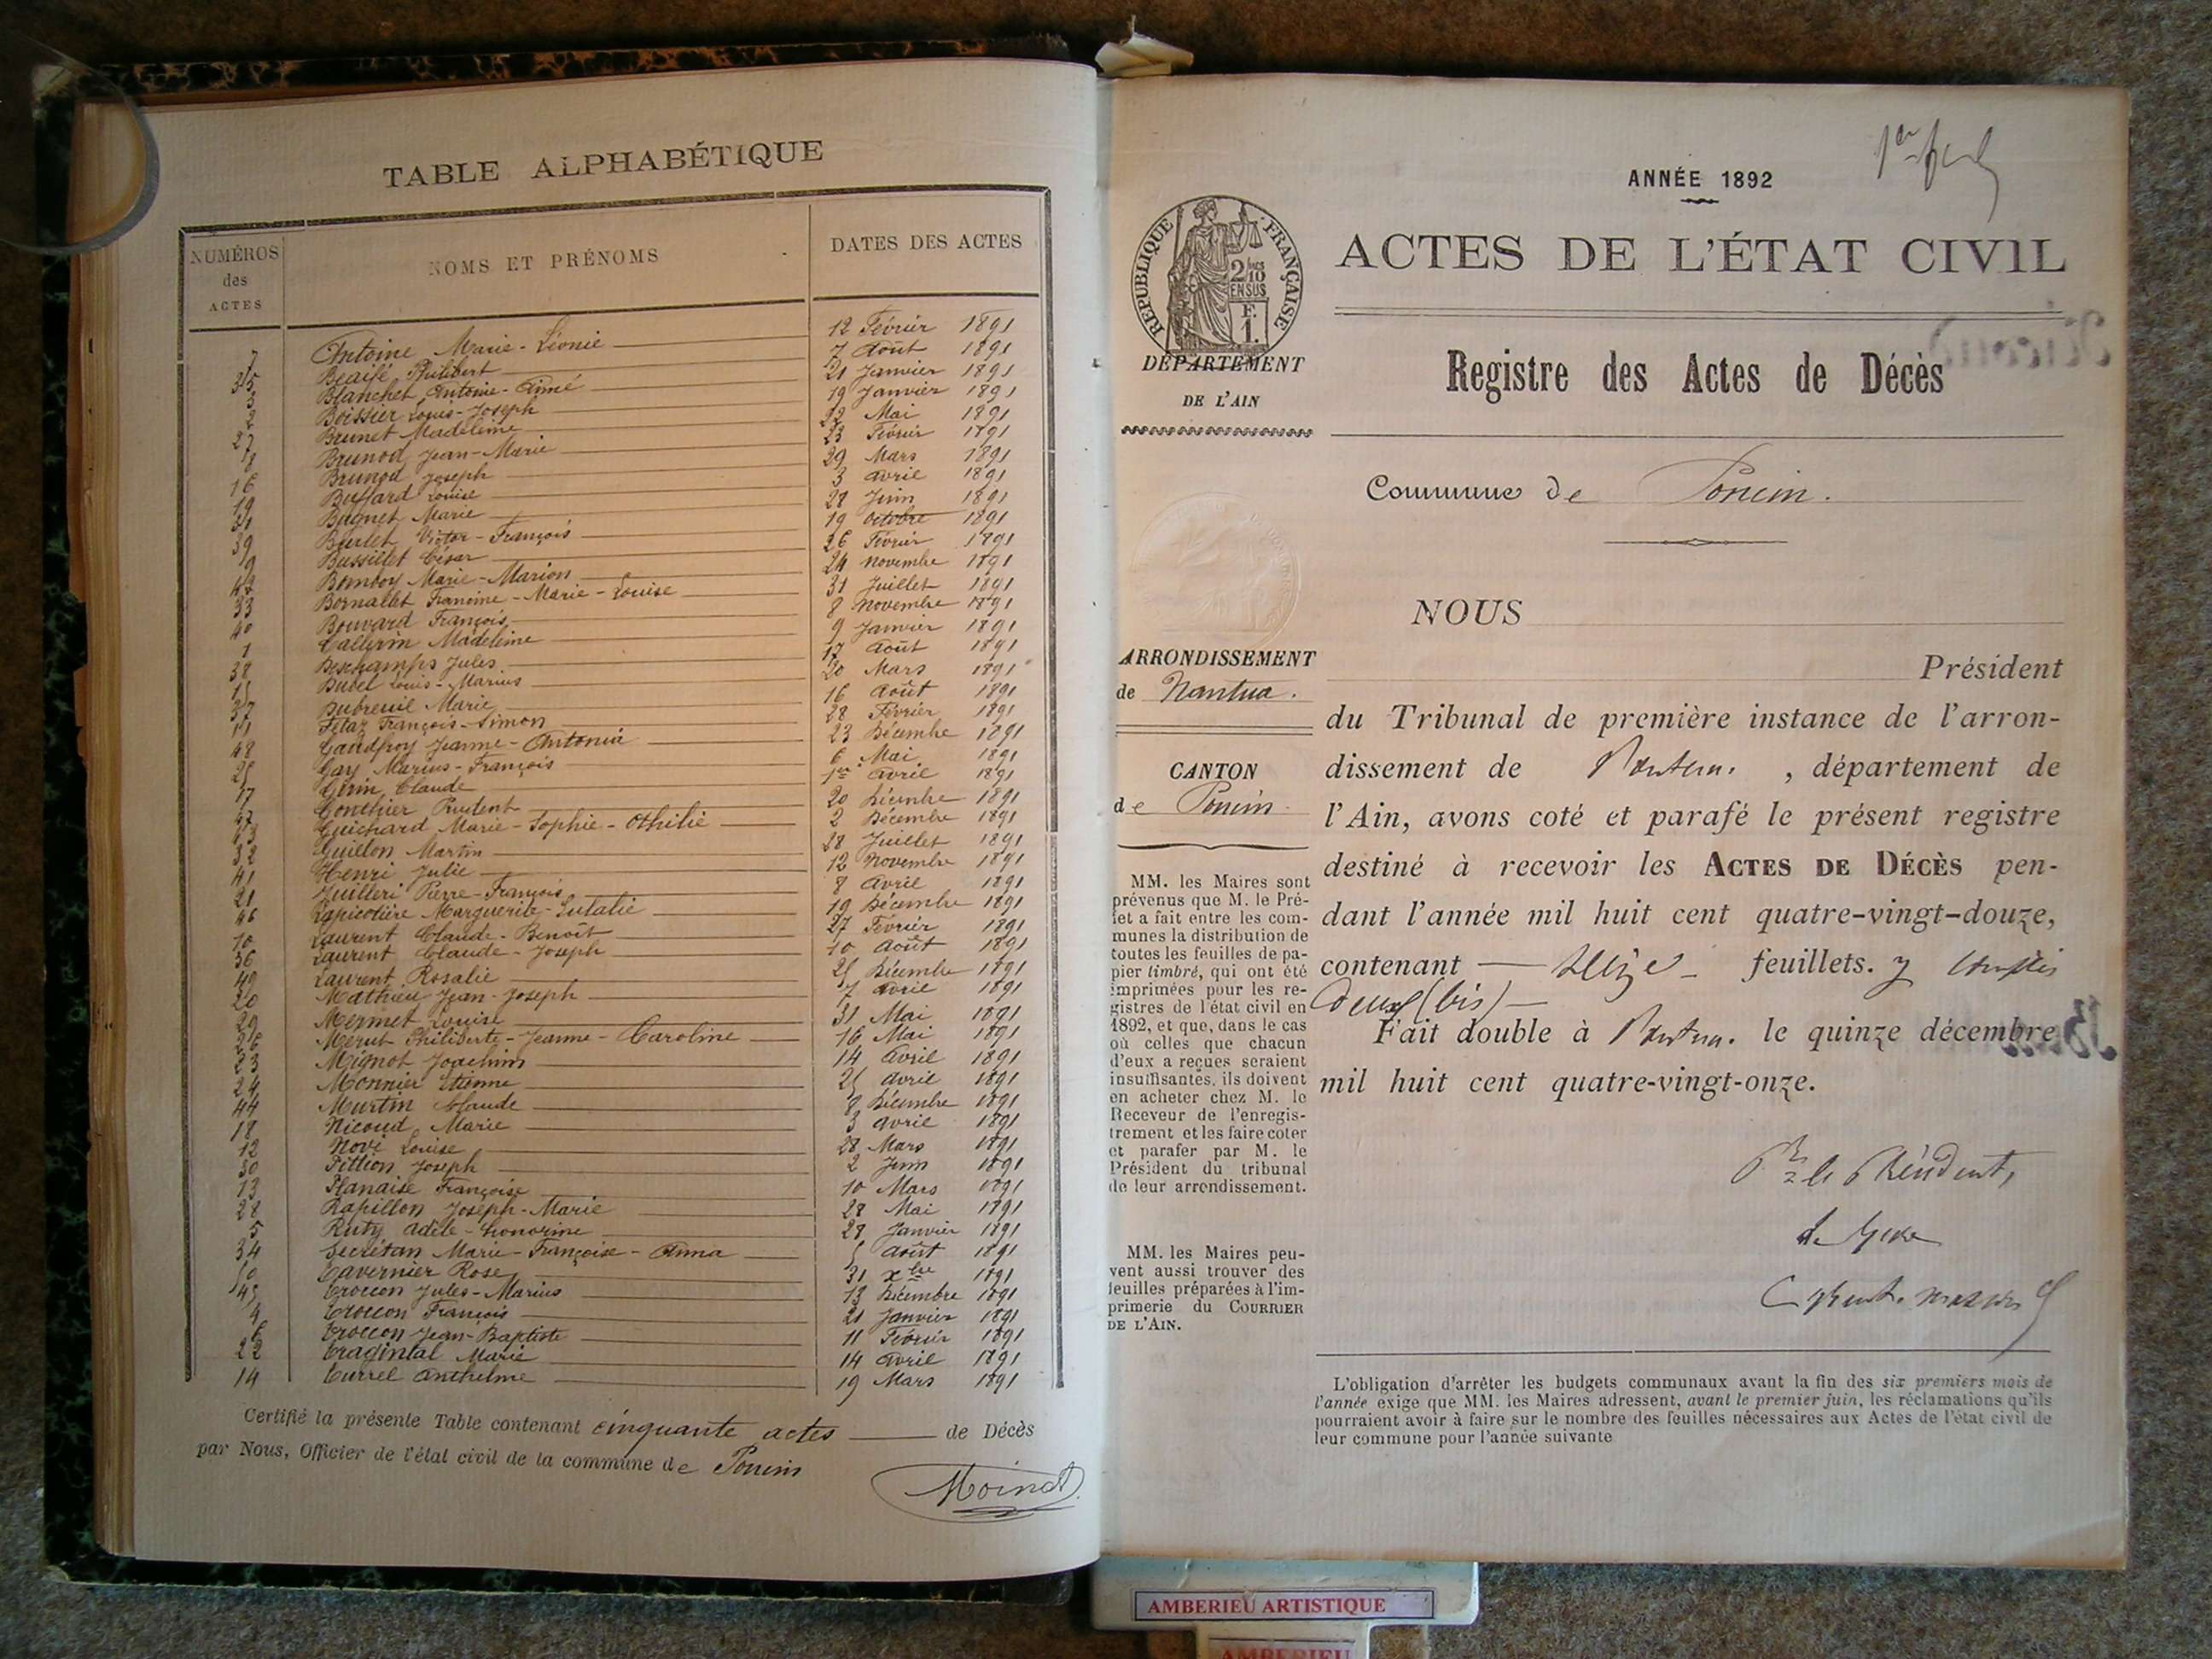 TABLE ALPHABÉTIQUE
NUMÉROS des ACTES
NOMS ET PRÉNOMS
DATES DES ACTES
7 Antoine Marie-Léonie 12 Février 1891
35 Philibert 7 Août 1891
3 Blanchet Antoine-Aimé 21 Janvier 1891
2 Boissier Louis-Joseph 19 Janvier 1891
27 Brunet Madeleine 22 Mai 1891
8 Brunod Jean-Marie 23 Février 1891
16 Brunod Joseph 29 Mars 1891
19 Buffard Louise 3 Avril 1891
31 Bugnet Marie 28 Juin 1891
39 Burlet Victor-François 19 Octobre 1891
9 Bussillet César 26 Février 1891
42 Bomboy Marie-Marion 24 Novembre 1891
33 Bornallet Francine-Marie-Louise 31 Juillet 1891
40 Bouvard François 8 Novembre 1891
1 Callerin Madeleine 9 Janvier 1891
38 Deschamps Jules 17 Août 1891
15 Dubel Louis-Marius 20 Mars 1891
37 Dubreuil Marie 16 Août 1891
11 Fétaz François-Simon 28 Février 1891
48 Gaudfroy Jeanne-Antonia 23 Décembre 1891
25 Gay Marius-François 6 Mai 1891
17 Gérin Claude 1er Avril 1891
47 Gonthier Prudent 20 Décembre 1891
43 Guichard Marie-Sophie-Othilie 2 Décembre 1891
32 Guillon Martin 28 Juillet 1891
41 Henri Julie 12 Novembre 1891
21 Juilleri Pierre-François 8 Avril 1891
46 Lapicotière Marguerite-Eulalie 19 Décembre 1891
10 Laurent Claude-Benoît 27 Février 1891
36 Laurent Claude-Joseph 10 Août 1891
49 Laurent Rosalie 25 Décembre 1891
20 Mathieu Jean-Joseph 7 Avril 1891
29 Mermet Louise 31 Mai 1891
26 Merut Philiberte-Jeanne-Caroline 16 Mai 1891
23 Mignot Joachim 14 Avril 1891
24 Monnier Etienne 25 Avril 1891
44 Murtin Claude 8 Décembre 1891
18 Nicoud Marie 3 Avril 1891
12 Novi Louise 28 Mars 1891
30 Pittion Joseph 2 Juin 1891
13 Planaise Françoise 10 Mars 1891
28 Rapillon Joseph-Marie 28 Mai 1891
5 Ruty Adèle-Honorine 28 Janvier 1891
34 Secrétan Marie-Françoise-Anna 5 Août 1891
50 Tavernier Rose 31 Xbre 1891
45 Troccon Jules-Marius 13 Décembre 1891
4 Troccon François 21 Janvier 1891
6 Troccon Jean-Baptiste 11 Février 1891
22 Tragintal Marie 14 Avril 1891
14 Turrel Anthelme 19 Mars 1891
Certifié la présente Table contenant cinquante actes de Décès
par Nous, Officier de l'état civil de la commune de Poncin
Moinat
ANNÉE 1892
RÉPUBLIQUE FRANÇAISE
2/10 EN SUS
F. 1.
ACTES DE L'ÉTAT CIVIL
Registre des Actes de Décès
DÉPARTEMENT
DE L'AIN
Commune de Poncin.
ARRONDISSEMENT
de Nantua.
CANTON
de Poncin
MM. les Maires sont
prévenus que M. le Pré-
fet a fait entre les com-
munes la distribution de
toutes les feuilles de pa-
pier timbré, qui ont été
imprimées pour les re-
gistres de l'état civil en
1892, et que, dans le cas
où celles que chacun
d'eux a reçues seraient
insuffisantes, ils doivent
en acheter chez M. le
Receveur de l'enregis-
trement et les faire coter
et parafer par M. le
Président du tribunal
de leur arrondissement.
MM. les Maires peu-
vent aussi trouver des
feuilles préparées à l'im-
primerie du COURRIER
DE L'AIN.
NOUS
Président
du Tribunal de première instance de l'arron-
dissement de Nantua. , département de
l'Ain, avons coté et parafé le présent registre
destiné à recevoir les ACTES DE DÉCÈS pen-
dant l'année mil huit cent quatre-vingt-douze,
contenant — seize — feuillets. y compris
deux (bis) —
Fait double à Nantua. le quinze décembre
mil huit cent quatre-vingt-onze.
Pr le Président,
L'obligation d'arrêter les budgets communaux avant la fin des six premiers mois de
l'année exige que MM. les Maires adressent, avant le premier juin, les réclamations qu'ils
pourraient avoir à faire sur le nombre des feuilles nécessaires aux Actes de l'état civil de
leur commune pour l'année suivante
AMBERIEU ARTISTIQUE
AMBERIEU